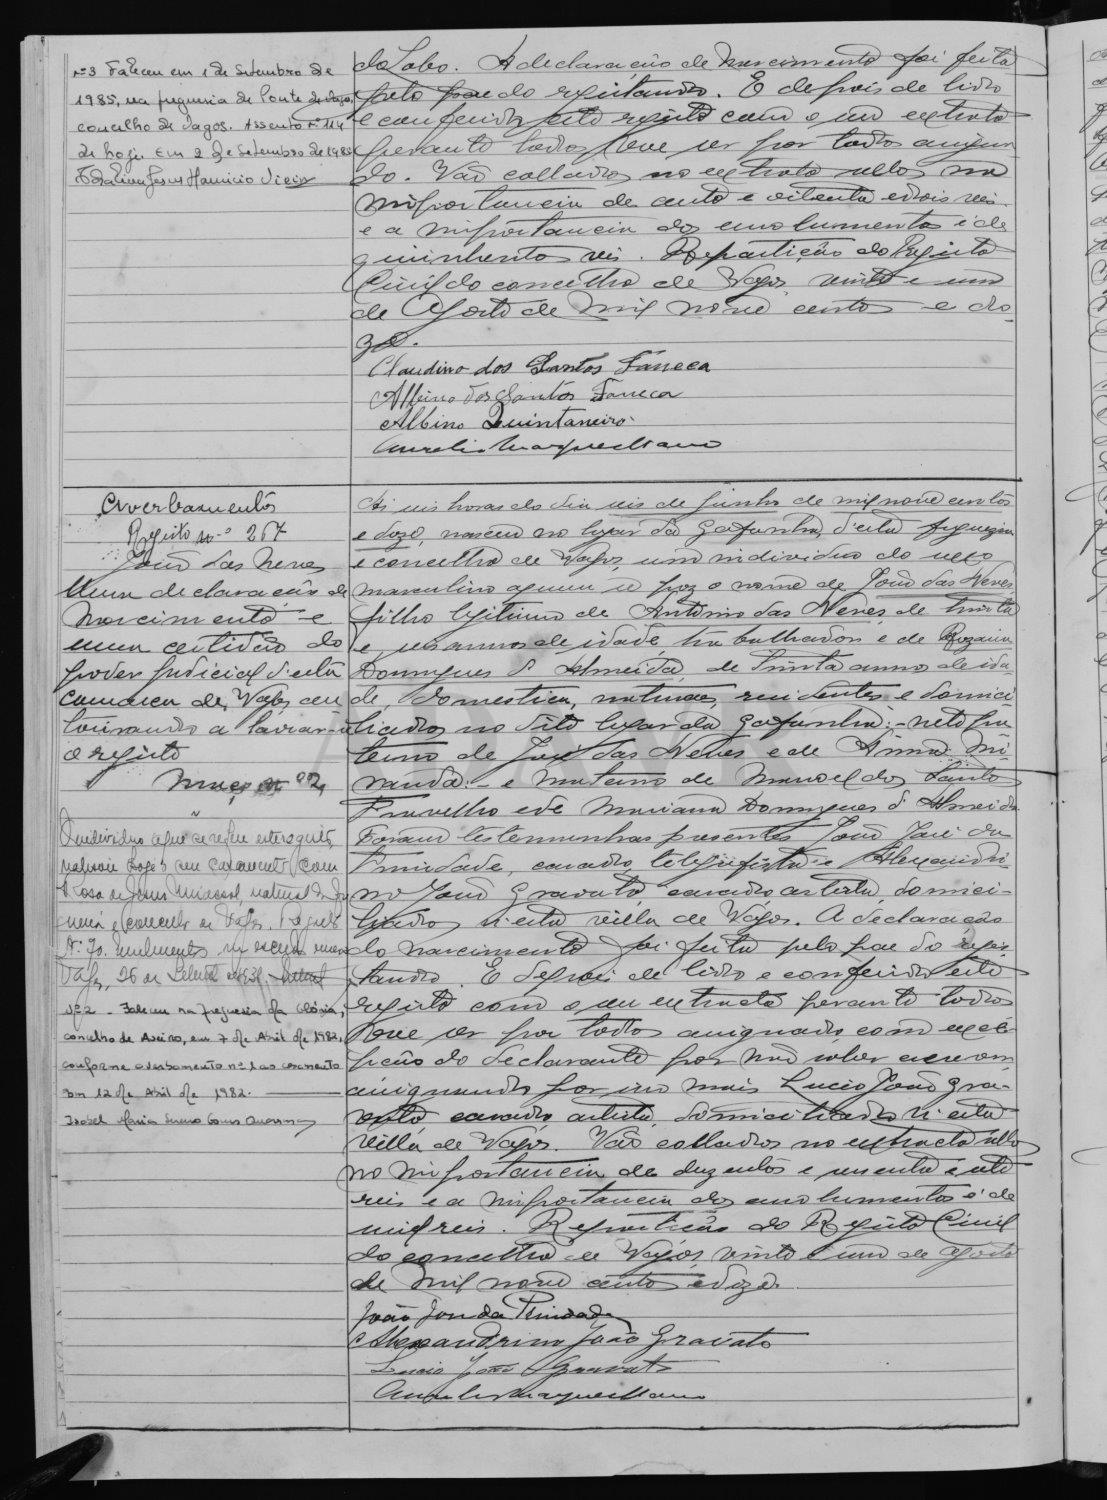 Nº 3 Faleceu em 1 de Setembro de
1985, na freguesia de Ponte de Vagos,
concelho de Vagos. Assento nº 114
de hoje. Em 2 de Setembro de 1985
do Lobo. A declaração de nascimento foi feita
pelo pae do registando. E depois de lido
e conferido este registo com o seu extrato
perante todos deve ser por todos assigna-
do. Vão collados no extrato sellos na
importancia de cento e oitenta e dois reis
e a importancia dos emolumentos é de
quinhentos reis. Repartição do Registo
Civil do concelho de Vagos, vinte e um
de Agosto de mil nove centos e do-
ze.
Claudino dos Santos Faneca
Albino dos Santos Faneca
Albino Quintaneiro
Averbamentos
Registo nº 267
João das Neves
Uma declaração de
nascimento e
uma certidão do
poder judicial d'esta
comarca de Vagos, au
torisando a lavrar-se
o registo
Maço nº 2
Individuo a que se refere este registo,
Vagos, 26 de
Nº 2 - Faleceu na freguesia da Glória,
concelho de Aveiro, em 7 de Abril de 1982,
conforme averbamento nº 1 ao casamento
Em 12 de Abril de 1982.
Isabel Maria
Ás seis horas do dia seis de Junho de mil nove centos
e doze, nasceu no lugar da Gafanha, d'esta freguezia
e concelho de Vagos, um individuo do sexo
masculino a quem se poz o nome de João das Neves
filho legitimo de Antonio das Neves, de trinta
e seis annos de idade, trabalhador e de Rozaria
Domingues d'Almeida, de trinta annos de ida-
de, domestica, naturaes, residentes e domici-
liados no dito lugar da Gafanha: - neto pa-
terno de José das Neves e de Anna Mi-
randa: - e materno de Manoel dos Santos
e de Mariana Domingues d'Almeida.
Foram testemunhas presentes João José da
Trindade, casado, telegrafista e Alexandri-
no João Gravato, casado, artista, domici-
liados n'esta villa de Vagos. A declaração
do nascimento foi feita pelo pae do regis-
tando. E depois de lido e conferido este
registo com o seu extracto perante todos
deve ser por todos assignado com exce-
pção do declarante por não saber escrever
assignando por seu mais Lucio João Gra-
vato, casado, artista, domiciliado n'esta
villa de Vagos. Vão collados no extracto sellos
na importancia de duzentos e sessenta e sete
reis e a importancia dos emolumentos é de
mil reis. Repartição do Registo Civil
do concelho de Vagos, vinte e um de Agosto
de mil nove centos e doze.
João José da Trindade
Alexandrino João Gravato
Lucio João Gravato